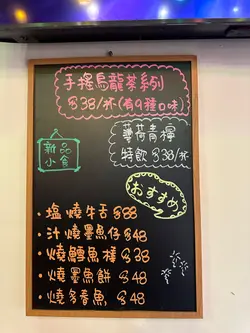 手搖烏龍茶系列
$38/杯(有9種口味)
薄荷青檸
特飲$38/杯
雜品
小食
おすすめ
・塩燒牛舌$88
・汁燒墨魚仔$48
・燒鱈魚樣$38
・燒墨魚餅$48
・燒多春魚$48